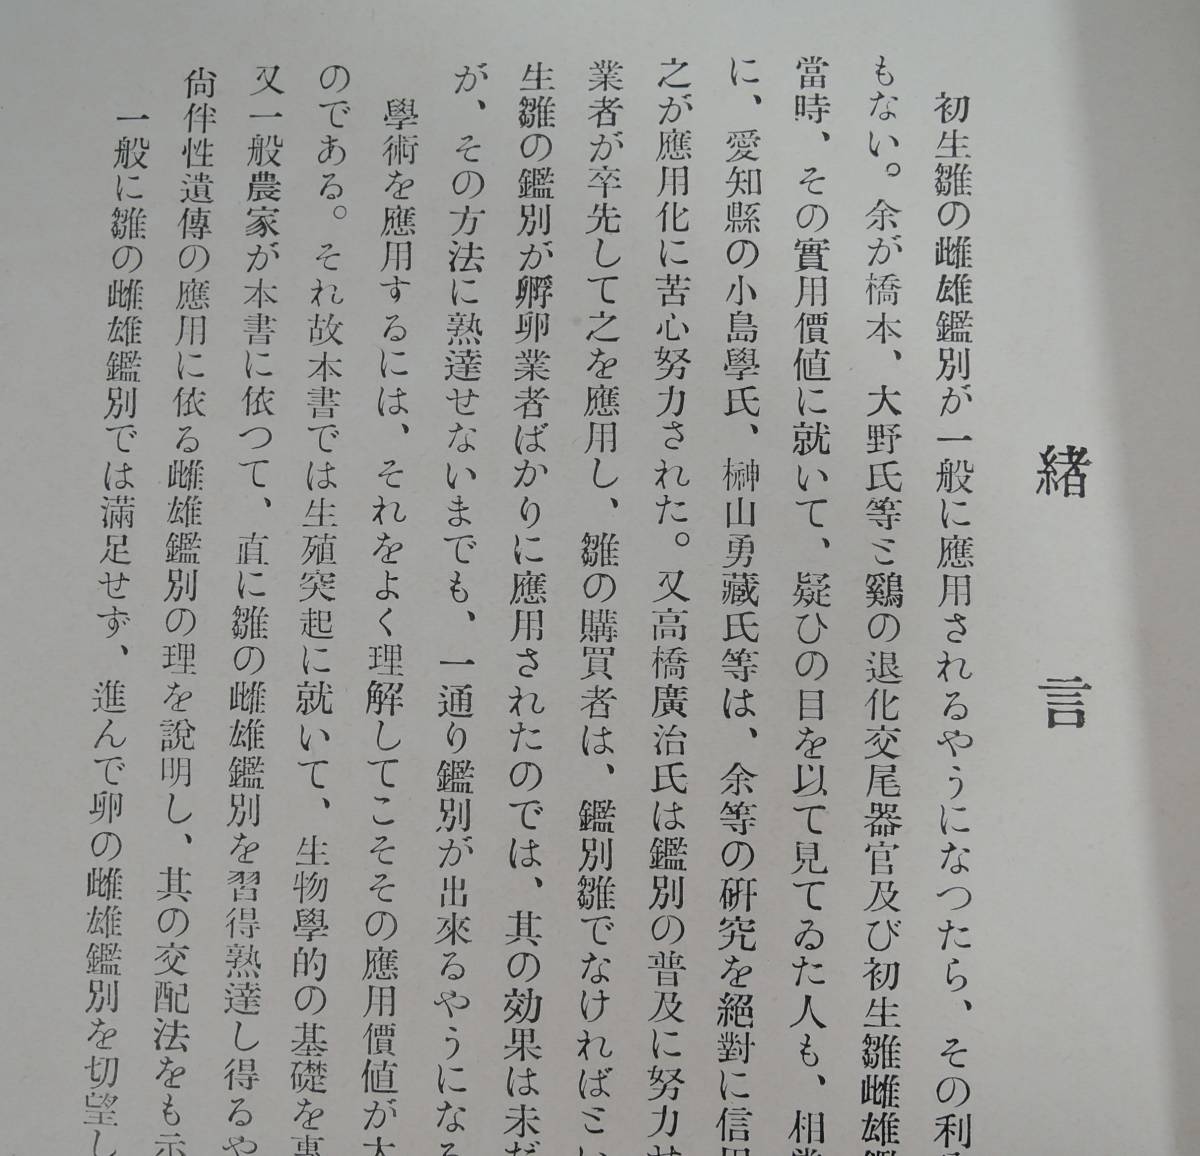 緒言
初生雛の雌雄鑑別が一般に應用されるやうになつたら、その利
もない。余が橋本、大野氏等ミ鷄の退化交尾器官及び初生雛雌雄
當時、その實用價値に就いて、疑ひの目を以て見てゐた人も、相
に、愛知縣の小島學氏、榊山勇藏氏等は、余等の硏究を絕對に信
之が應用化に苦心努力された。又高橋廣治氏は鑑別の普及に努力せ
業者が卒先して之を應用し、雛の購買者は、鑑別雛でなければミい
生雛の鑑別が孵卵業者ばかりに應用されたのでは、其の効果は未だ
が、その方法に熟達せないまでも、一通り鑑別が出來るやうになる
學術を應用するには、それをよく理解してこそその應用價値が大
のである。それ故本書では生殖突起に就いて、生物學的の基礎を
又一般農家が本書に依つて、直に雛の雌雄鑑別を習得熟達し得るや
尙伴性遺傳の應用に依る雌雄鑑別の理を說明し、其の交配法をも示
一般に雛の雌雄鑑別では滿足せず、進んで卵の雌雄鑑別を切望し